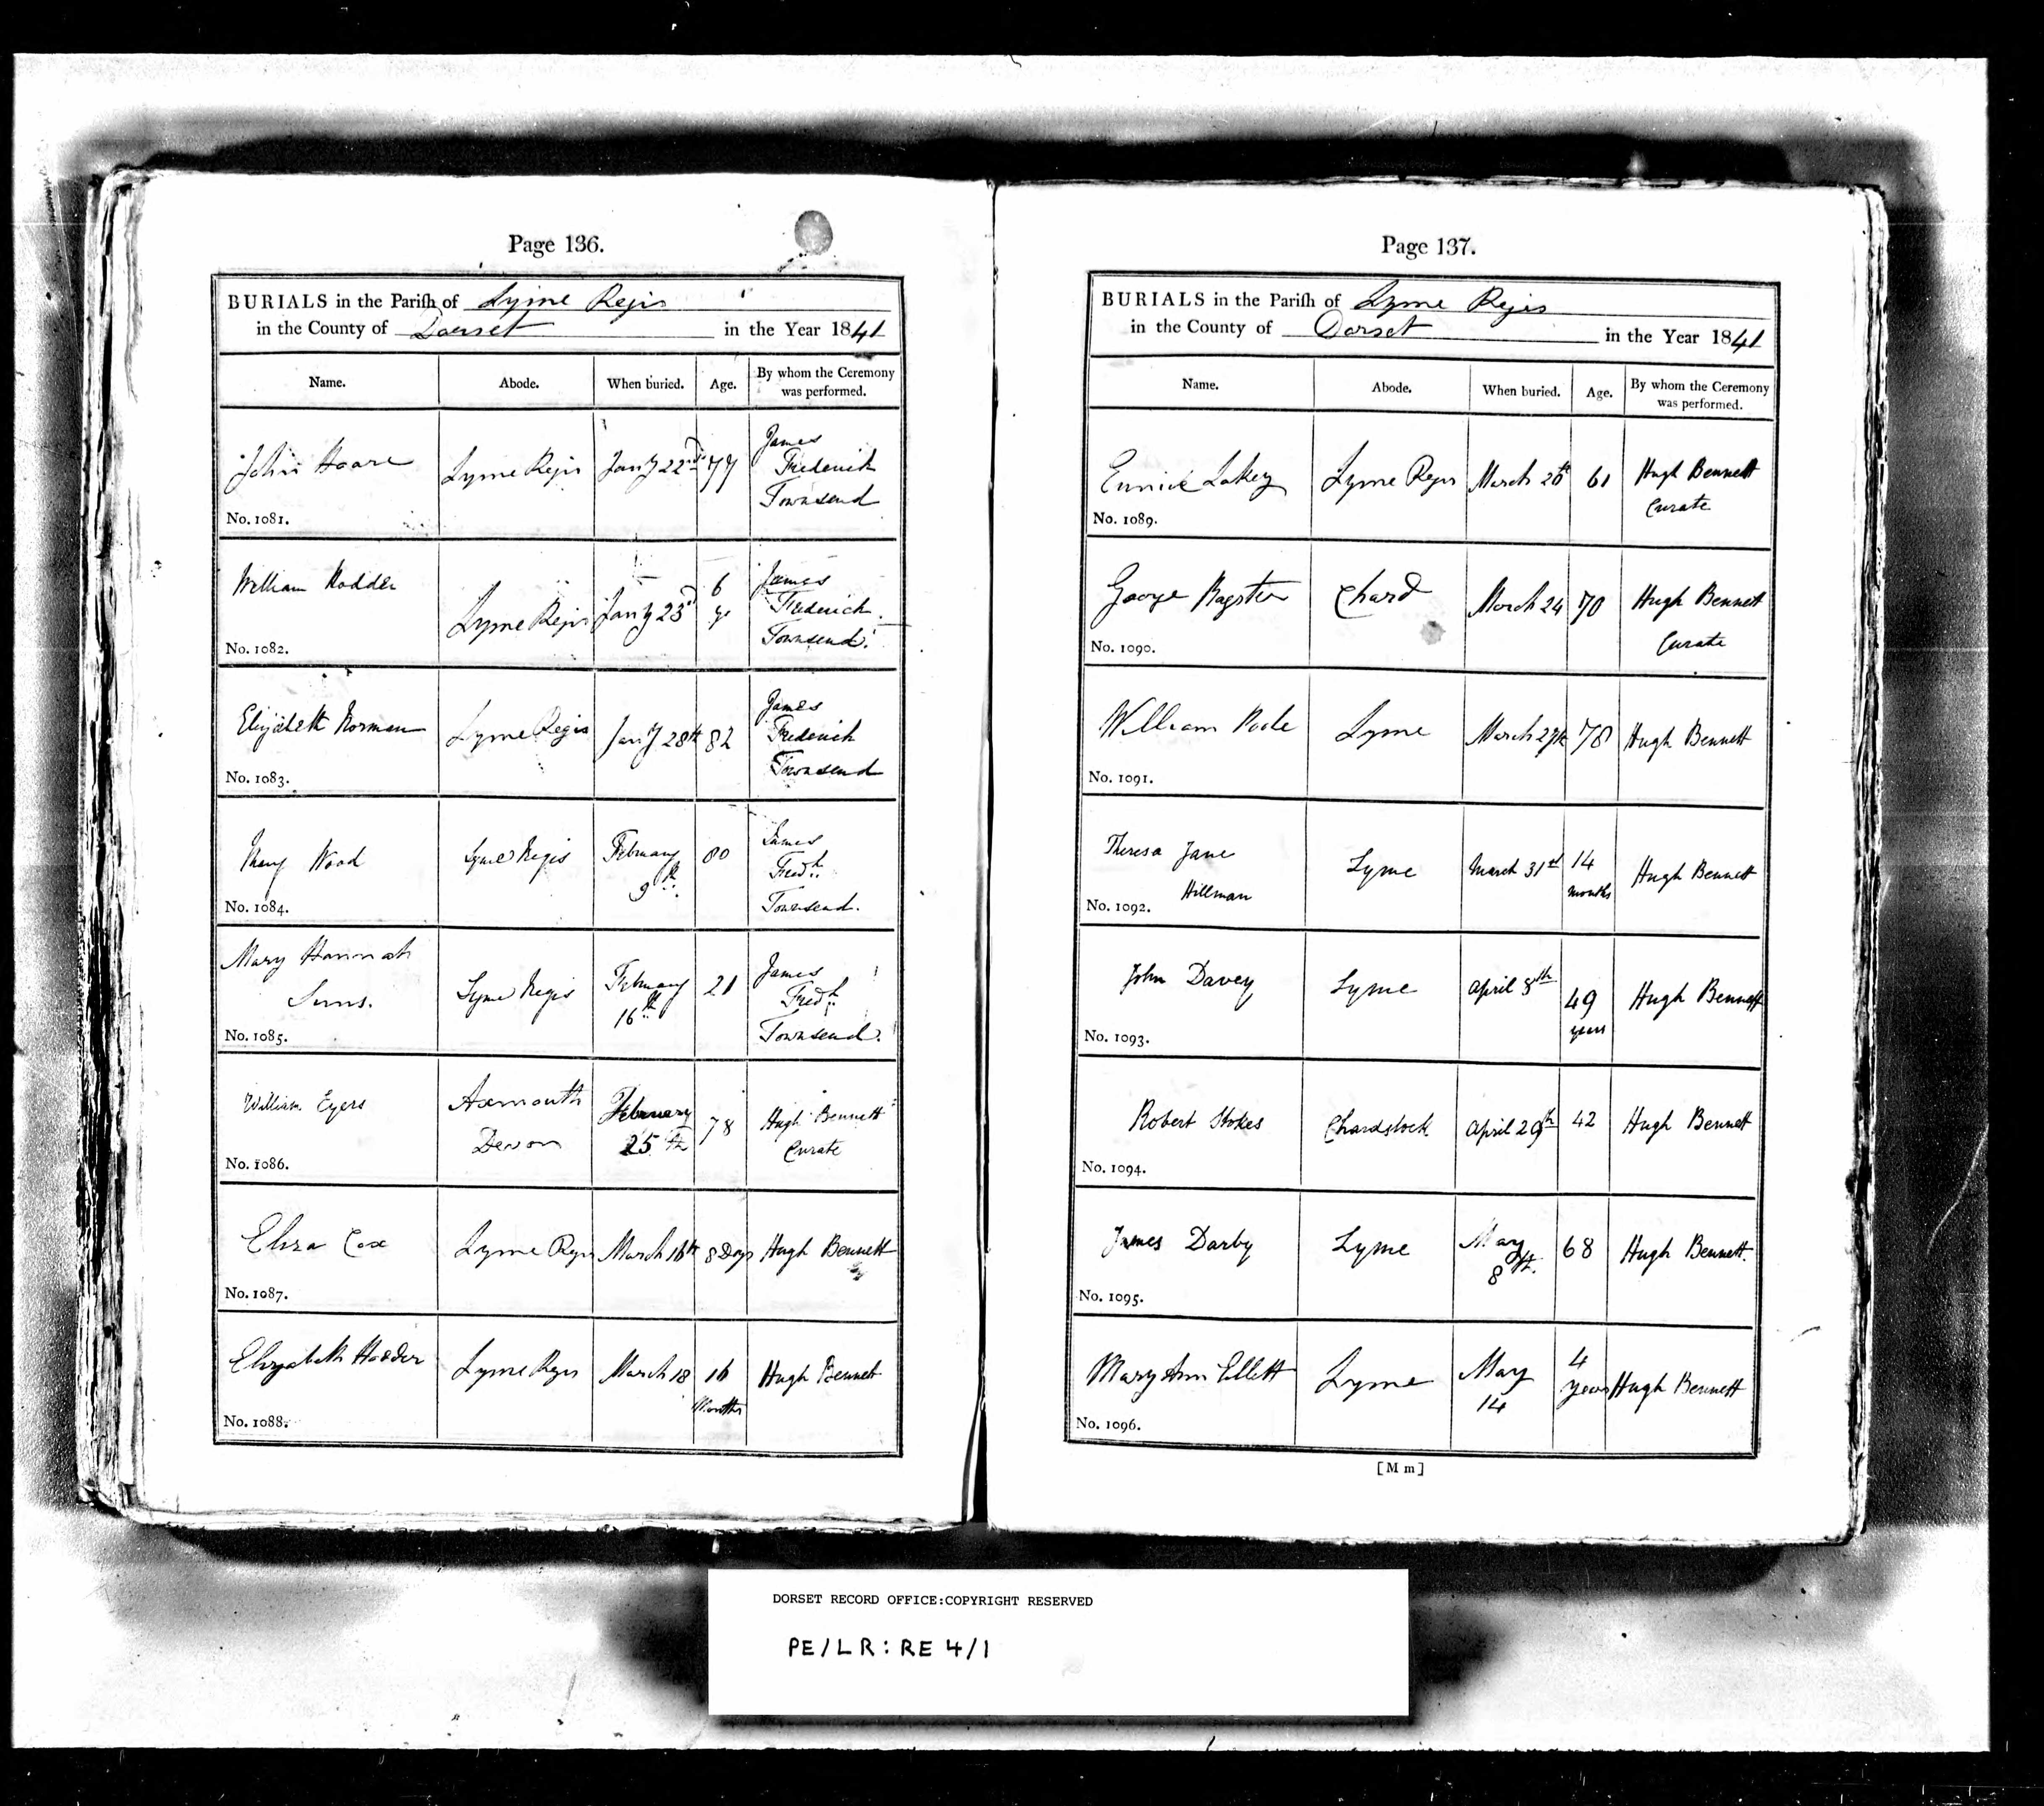 Page 136.
BURIALS in the Pariſh of Lyme Regis
in the County of Dorset in the Year 1841
Name.
Abode.
When buried.
Age.
By whom the Ceremony
was performed.
John Hoare
No. 1081.
Lyme Regis
Jany 22nd
77
James
Frederick
Townsend
William Hodder
No. 1082.
Lyme Regis
Jany 23d
6
James
Frederick
Townsend
Elizabeth Norman
No. 1083.
Lyme Regis
Jany 28th
82
James
Frederick
Townsend
Mary Wood
No. 1084.
Lyme Regis
February
9th
80
James
Fredk
Townsend.
Mary Hannah
Sims.
No. 1085.
Lyme Regis
February
16th
21
James
Fredk
Townsend.
William Eyers
No. 1086.
Axmouth
Devon
February
25th
78
Hugh Bennett
Curate
Eliza Cox
No. 1087.
Lyme Regis
March 16th
8 Days
Hugh Bennett
Elizabeth Hodder
No. 1088.
Lyme Regis
March 18
16
Months
Hugh Bennett
Page 137.
BURIALS in the Pariſh of Lyme Regis
in the County of Dorset in the Year 1841
Name.
Abode.
When buried.
Age.
By whom the Ceremony
was performed.
Eunice Lakey
No. 1089.
Lyme Regis
March
61
Hugh Bennett
Curate
George Bagster
No. 1090.
Chard
March 24
70
Hugh Bennett
Curate
William Poole
No. 1091.
Lyme
March 27th
78
Hugh Bennett
Theresa Jane
Hillman
No. 1092.
Lyme
March 31st
14
months
Hugh Bennett
John Davey
No. 1093.
Lyme
April 8th
49
years
Hugh Bennett
Robert Stokes
No. 1094.
Chardstock
April 29th
42
Hugh Bennett
James Darby
No. 1095.
Lyme
May
8th.
68
Hugh Bennett.
Mary Ann Ellett
No. 1096.
Lyme
May
14
4
years
Hugh Bennett
[M m]
DORSET RECORD OFFICE:COPYRIGHT RESERVED
PE/LR:RE 4/1